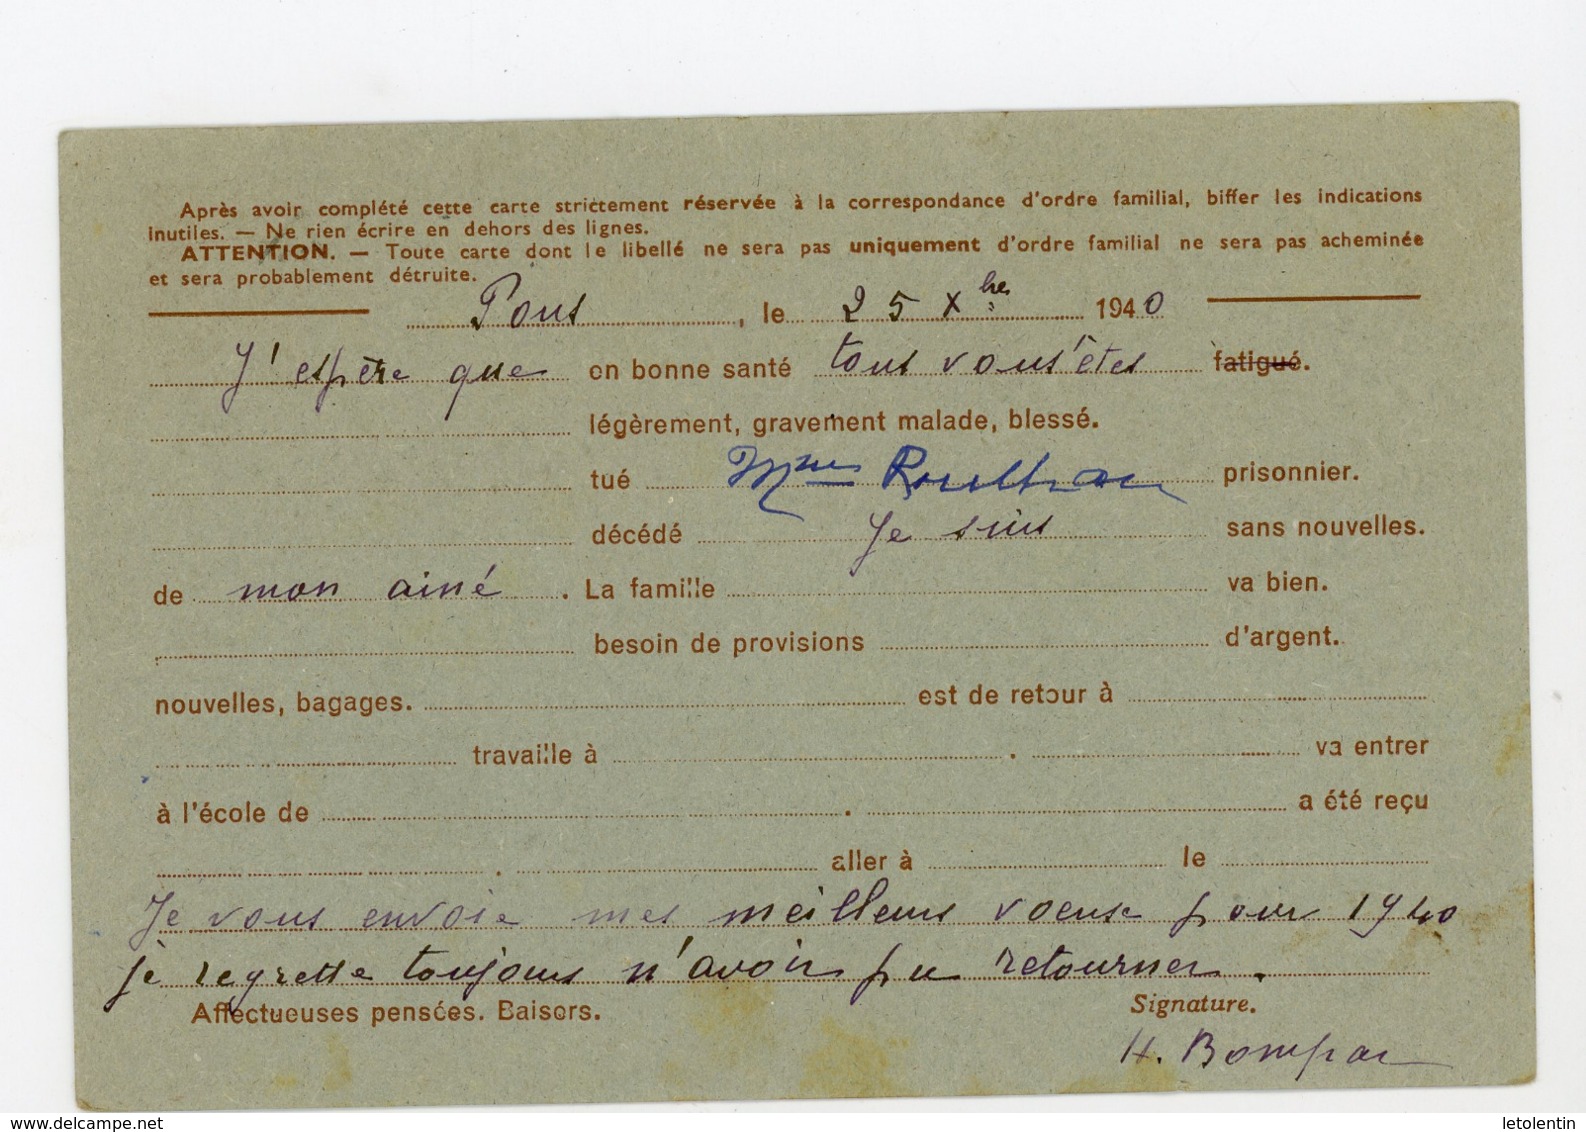 Après avoir complété cette carte strictement réservée à la correspondance d'ordre familial, biffer les indications
inutiles. — Ne rien écrire en dehors des lignes.
ATTENTION. — Toute carte dont le libellé ne sera pas uniquement d'ordre familial ne sera pas acheminée
et sera probablement détruite.
Pons, le 25 Xbre 1940
J'espère que en bonne santé tous vous êtes fatigué.
légèrement, gravement malade, blessé.
tué Mme prisonnier.
décédé Je suis sans nouvelles.
de mon ainé. La famille va bien.
besoin de provisions d'argent.
nouvelles, bagages. est de retour à
travaille à . va entrer
à l'école de . a été reçu
. aller à le
Je vous envoie mes meilleurs voeux pour 1940
je regrette toujours n'avoir pu retourner.
Affectueuses pensées. Baisers. Signature.
H. Bompar
www.delcampe.net
letolentin